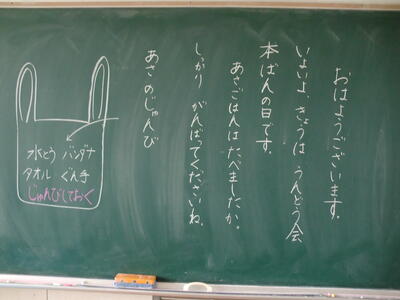 おはようございます。
いよいよ、きょうは うんどう会
本ばんの日です。
あさごはんはたべましたか。
しっかり がんばってくださいね。
あさのじゅんび
水とう バンダナ
タオル ぐん手
じゅんびしておく